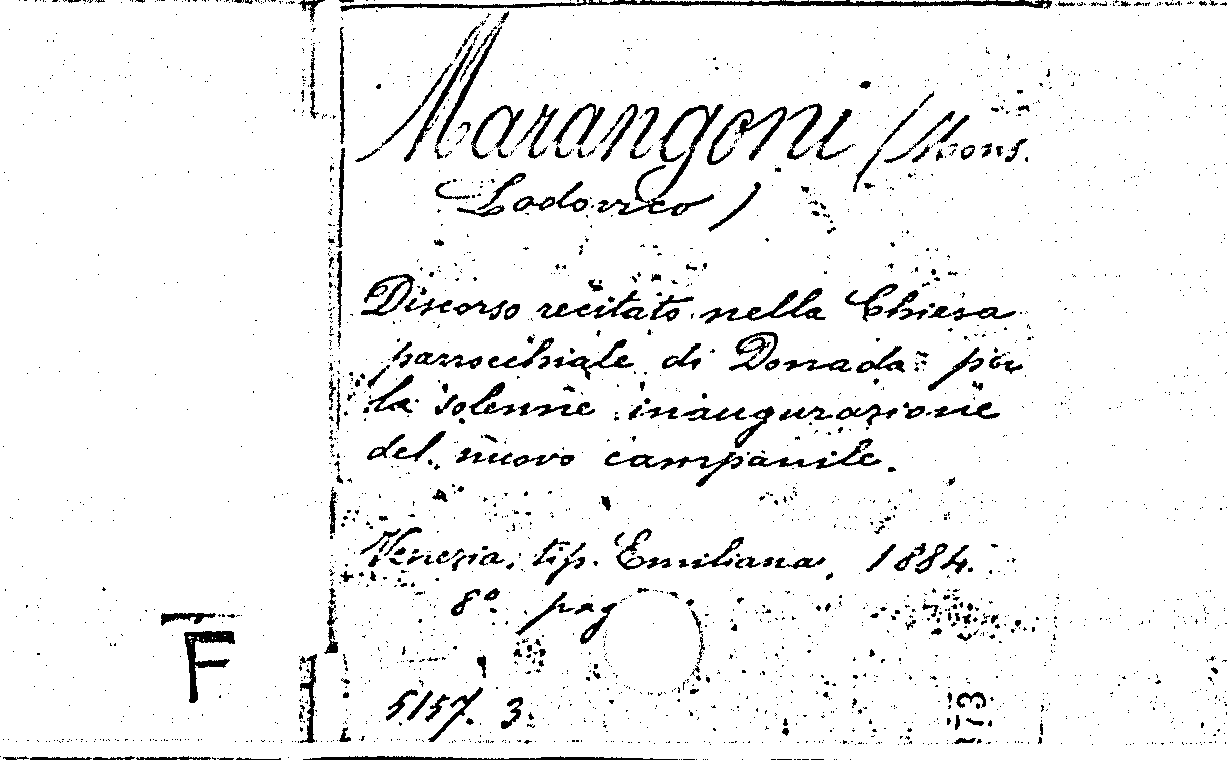 Marangoni (Mons.
Lodovico)
Discorso recitato nella Chiesa
parrocchiale di Donada per
la solenne inaugurazione
del nuovo campanile.
Venezia, tip. Emiliana, 1884.
8° pag
5157. 3.
F
173